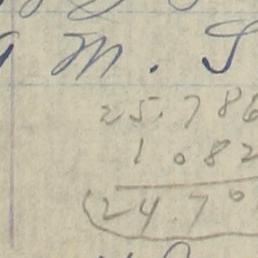 m. S
25.786
1.082
24.70